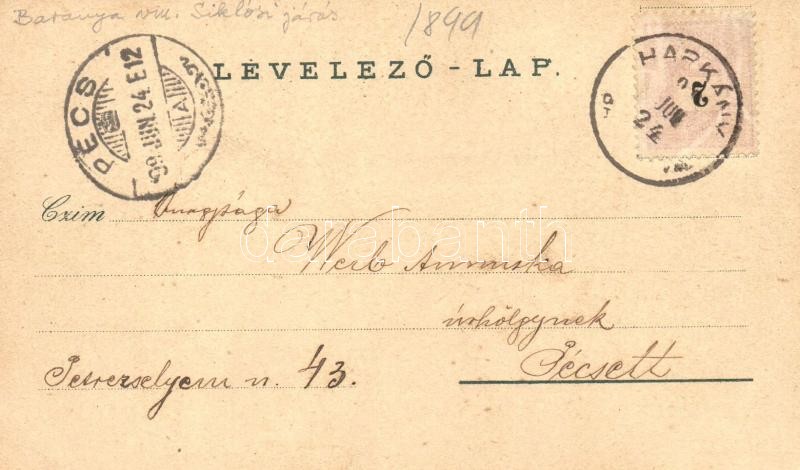 Baranya vm. Siklósi járás
1899
LEVELEZŐ-LAP.
PÉCS
99 JUN. 24 E12
HARKÁNY
JUN
24
2
Czim Őnagysága
Weib Annuska
úrhölgynek
Pécsett
Petrezselyem u. 43.
darabanth